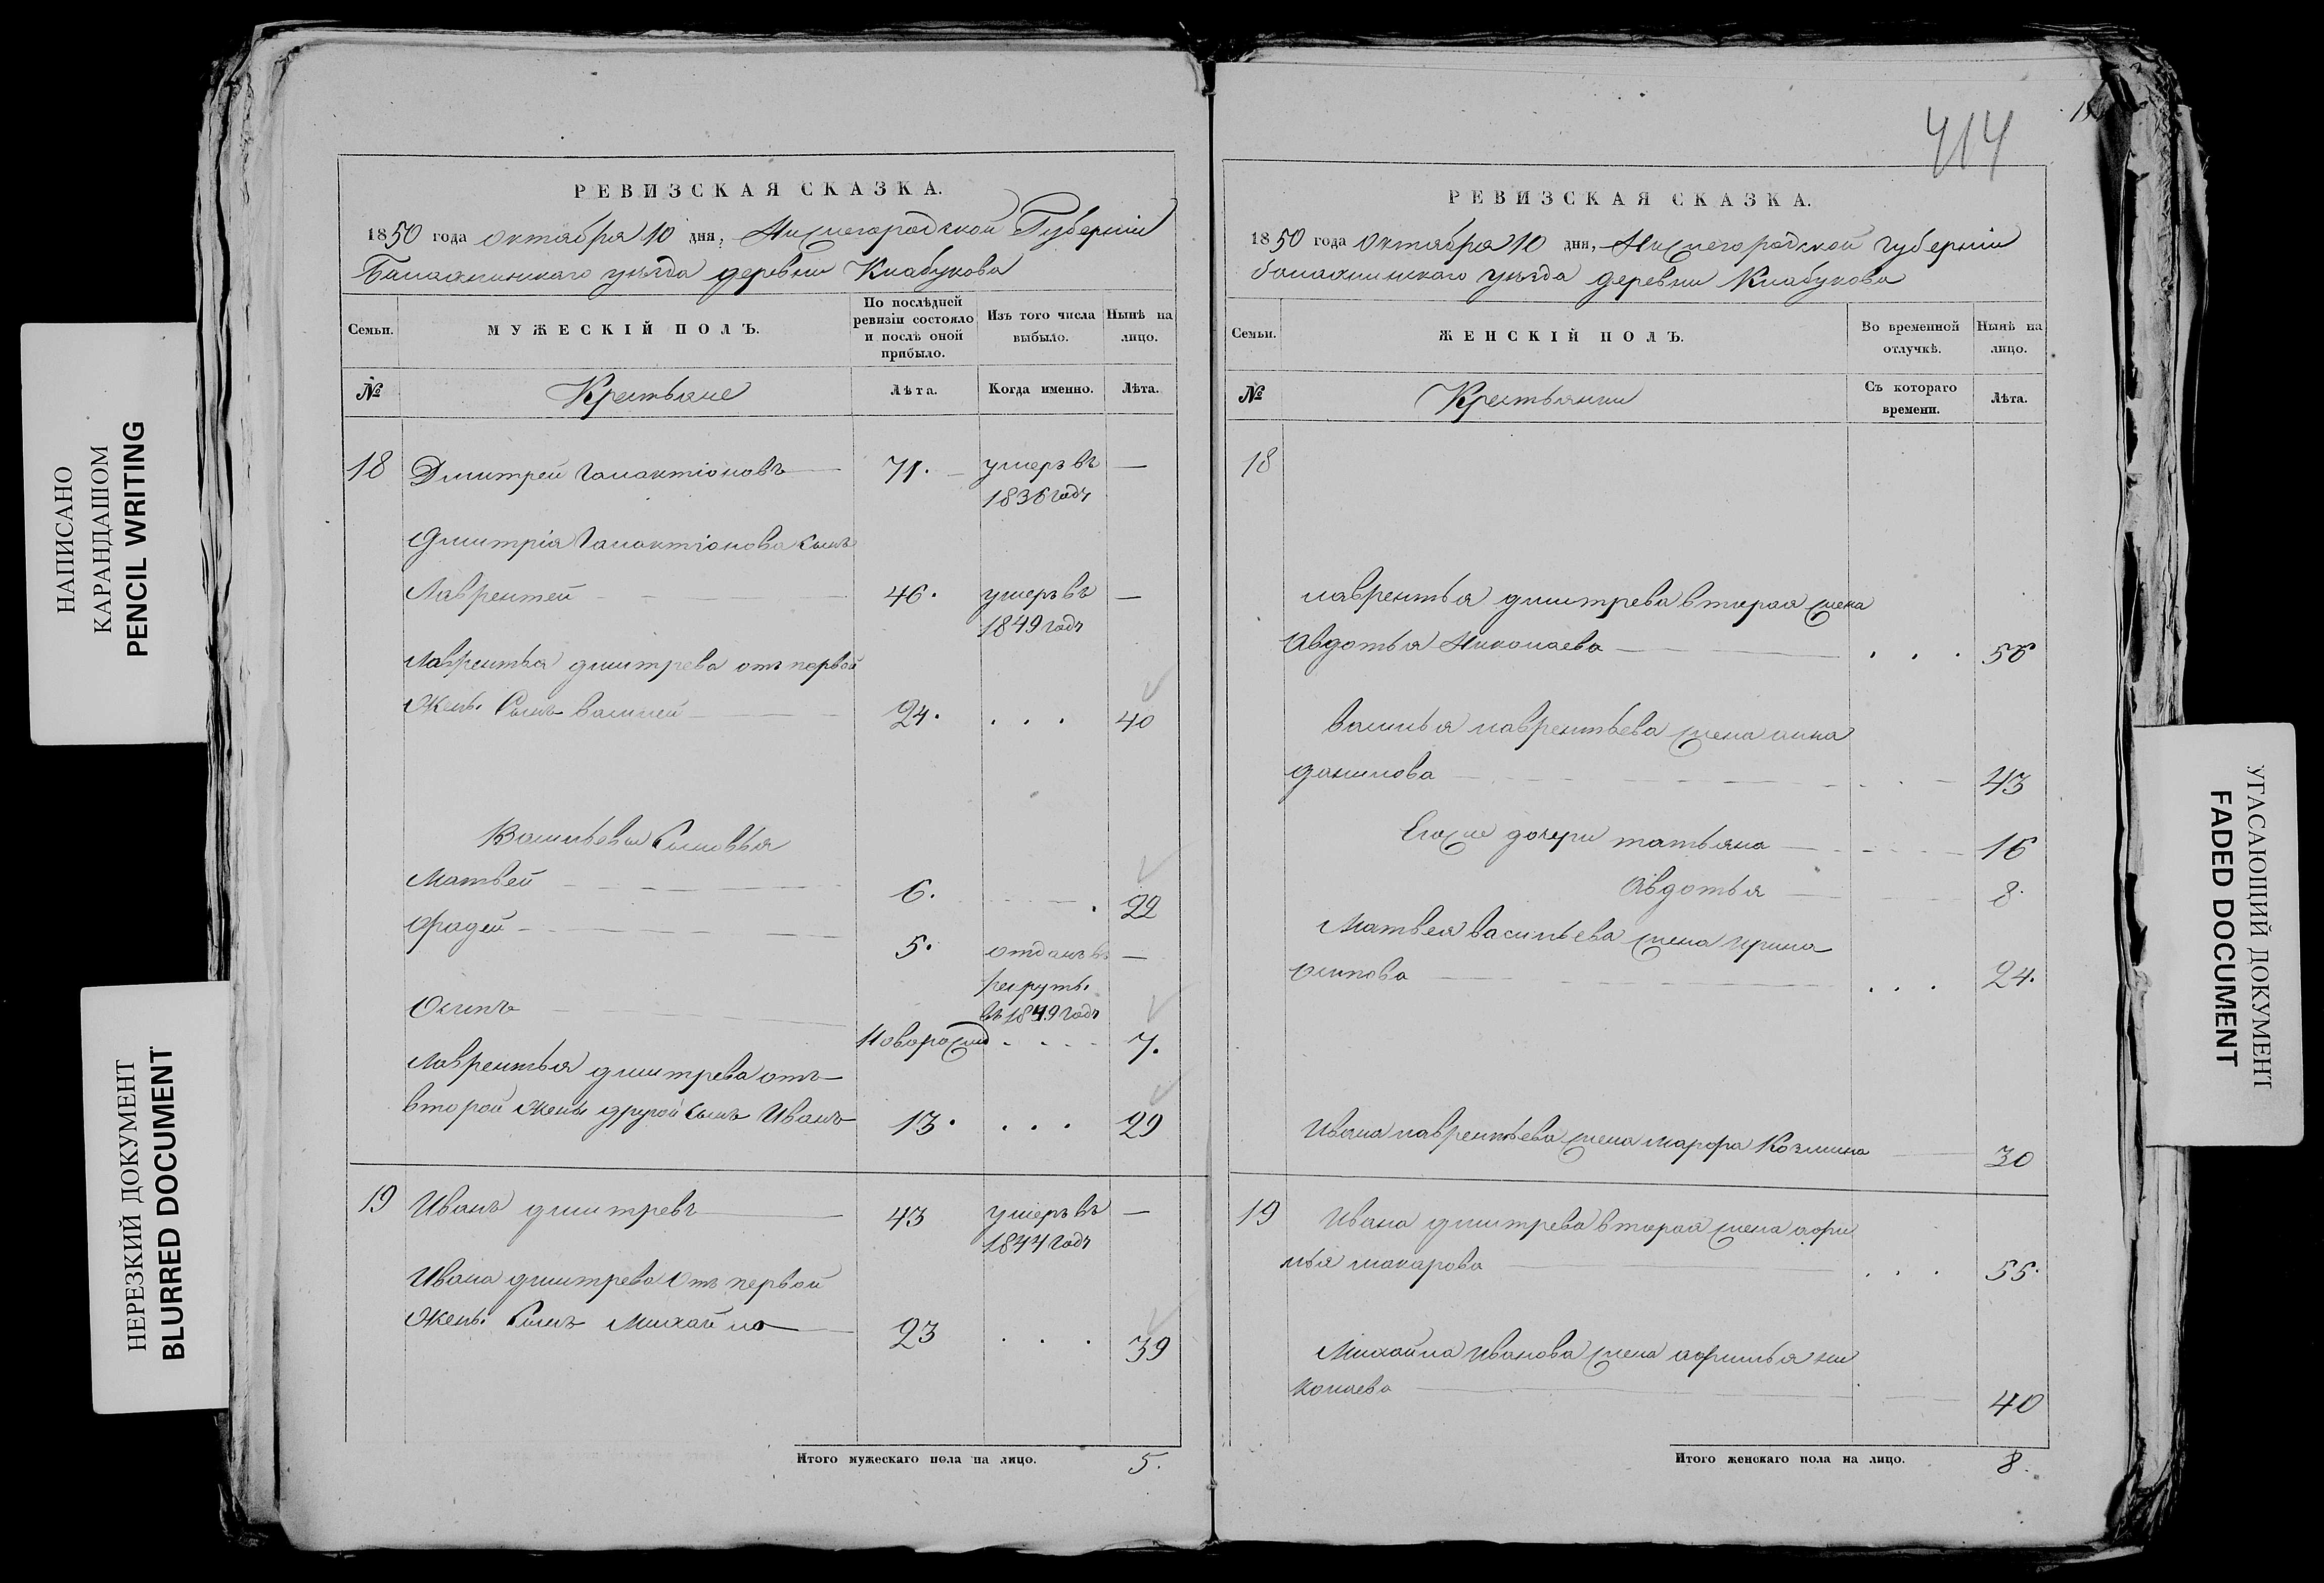 414
РЕВИЗСКАЯ СКАЗКА.
1850 года Октября 10 дня, Нижегородской Губерніи
Балахнинскаго уѣзда деревни Клабукова
Семьи.
МУЖЕСКІЙ ПОЛЪ.
По послѣдней ревизіи состояло и послѣ оной прибыло.
Изъ того числа выбыло.
Нынѣ на лицо.
№
Крестьяне
Лѣта.
Когда именно.
Лѣта.
18 Дмитрей Галактіоновъ 71. умеръ въ —
1836 годѣ
Дмитрія Галактіонова сынъ
Лаврентей 46. умеръ въ —
1849 годѣ
Лаврентья дмитрева отъ первой
жены Сынъ василей 24. . . . 40
Васильевы Сыновья
Матвей 6. 22
Фадей 5. отданъ въ —
рекруты
въ 1849 годѣ
Осипъ Новорожд 7.
Лаврентья дмитрева отъ
второй жены другой сынъ Иванъ 13. . . . 29
19 Иванъ дмитревъ 43 умеръ въ —
1844 годѣ
Ивана дмитрева Отъ первой
жены Сынъ Михайло 23 . . . 39
Итого мужескаго пола на лицо. 5.
РЕВИЗСКАЯ СКАЗКА.
1850 года Октября 10 дня, Нижегородской губерніи
балахнинскаго уѣзда деревни Клабукова
Семьи.
ЖЕНСКІЙ ПОЛЪ.
Во временной отлучкѣ.
Нынѣ на лицо.
№
Крестьянки
Съ котораго времени.
Лѣта.
18
лаврентья дмитрева вторая жена
Авдотья Николаева . . . 56
Василья лаврентьева жена анна
данилова 43
Егоже дочери татьяна 16
Авдотья 8.
Матвея васильева жена ирина
осипова . . . 24.
Ивана лаврентьева жена марфа Козмина 30
19 Ивана дмитрева вторая жена афи
мья макарова . . . 55.
Михайла Иванова жена афимья ни
колаева 40
Итого женскаго пола на лицо. 8.
НАПИСАНО
КАРАНДАШОМ
PENCIL WRITING
НЕРЕЗКИЙ ДОКУМЕНТ
BLURRED DOCUMENT
УГАСАЮЩИЙ ДОКУМЕНТ
FADED DOCUMENT